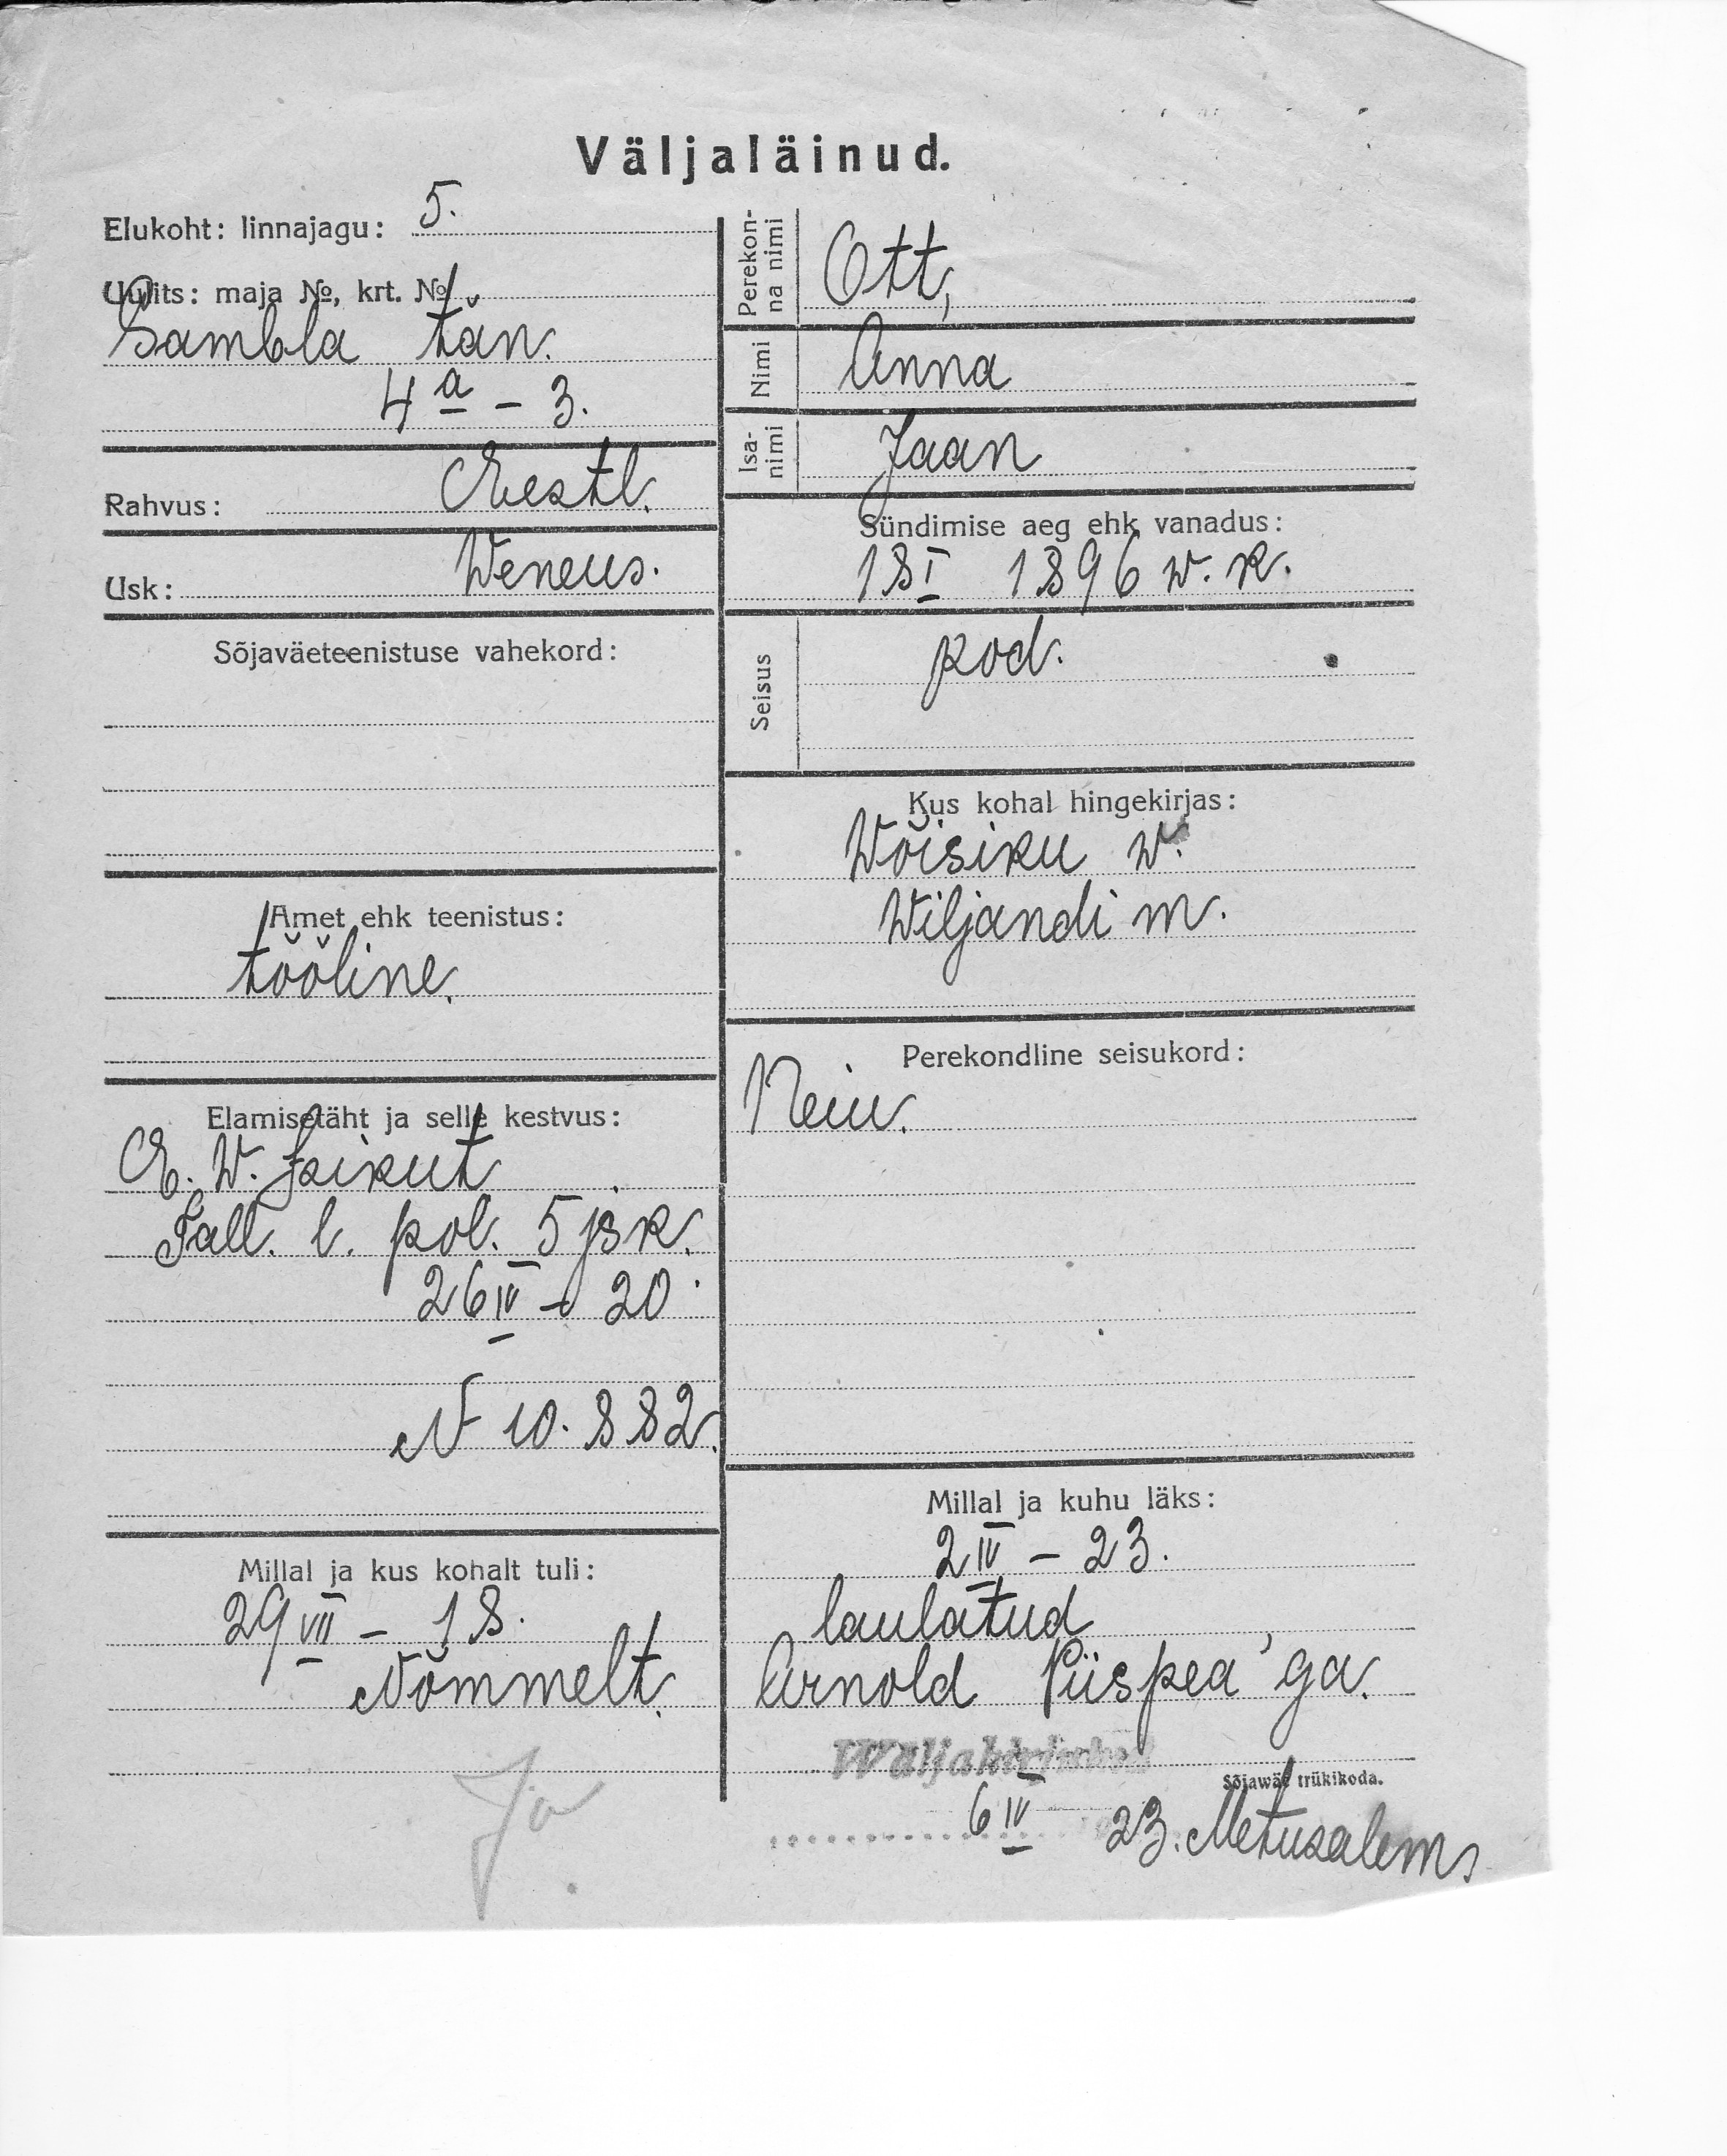 Väljaläinud.
Elukoht: linnajagu: 5.
Uulits: maja №, krt. №
Sambla tän.
4 a – 3.
Rahvus: Eestl.
Usk: Weneus.
Sõjaväeteenistuse vahekord:
Amet ehk teenistus:
tööline.
Elamisetäht ja selle kestvus:
E. W. isikut
Tall. l. pol. 5 jsk.
26 IV – 20.
N 10.882.
Millal ja kus kohalt tuli:
29 VII – 18.
Nõmmelt.
Jo
Perekonna nimi
Ott,
Nimi
Anna
Isanimi
Jaan
Sündimise aeg ehk vanadus:
18 I 1896 w. k.
Seisus
kod.
Kus kohal hingekirjas:
Wõisiku w.
Wiljandi m.
Perekondline seisukord:
Neiu.
Millal ja kuhu läks:
2 IV – 23.
laulatud
Arnold Piispea'ga.
Sõjawäe trükikoda.
6 IV 23. Metusalem